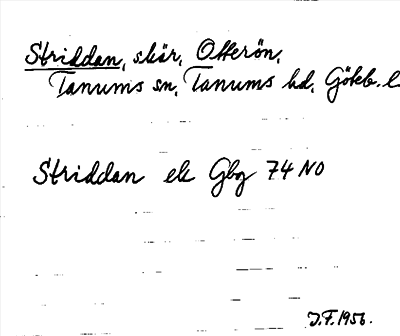 Striddan, skär, Otterön,
Tanums sn, Tanums hd, Göteb. l.
Striddan ek Gbg 74 NO
J.F. 1956.